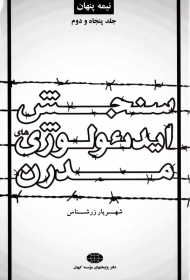 نیمه پنهان
جلد پنجاه و دوم
سنجش
ایدئولوژی‌های
مدرن
شهریار زرشناس
دفتر پژوهشهای موسسه کیهان